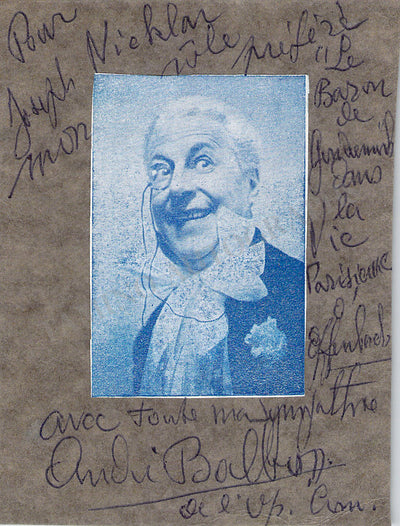 Pour
Joseph Nicklar
mon rôle préféré
"Le
Baron
de
Gondremark
dans
la
Vie
Parisienne
d'
Offenbach
avec toute ma sympathie
André Balbon
de l'Op. Com.